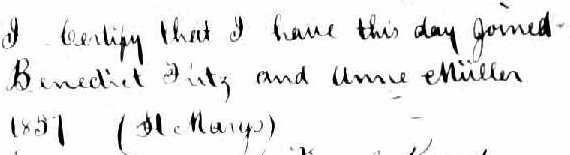 I Certify that I have this day joined
Benedict Fritz and Anne Müller
1857 (St Marys)